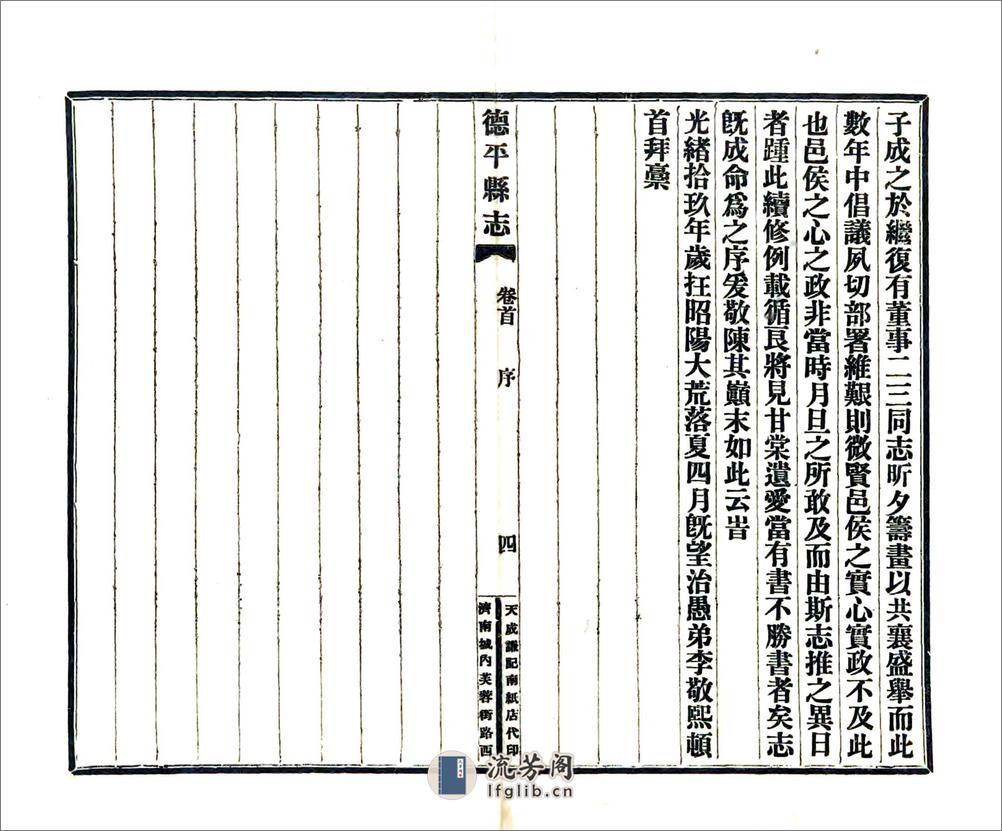 子成之於繼復有董事二三同志昕夕籌畫以共襄盛舉而此
數年中倡議夙切部署維艱則微賢邑侯之實心實政不及此
也邑侯之心之政非當時月旦之所敢及而由斯志推之異日
者踵此續修例載循良將見甘棠遺愛當有書不勝書者矣志
旣成命爲之序爰敬陳其巔末如此云旹
光緒拾玖年歲在昭陽大荒落夏四月旣望治愚弟李敬熙頓
首拜藁
德平縣志
卷首 序
四
天成謙記南紙店代印
濟南城內芙蓉街路西
流芳阁
lfglib.cn